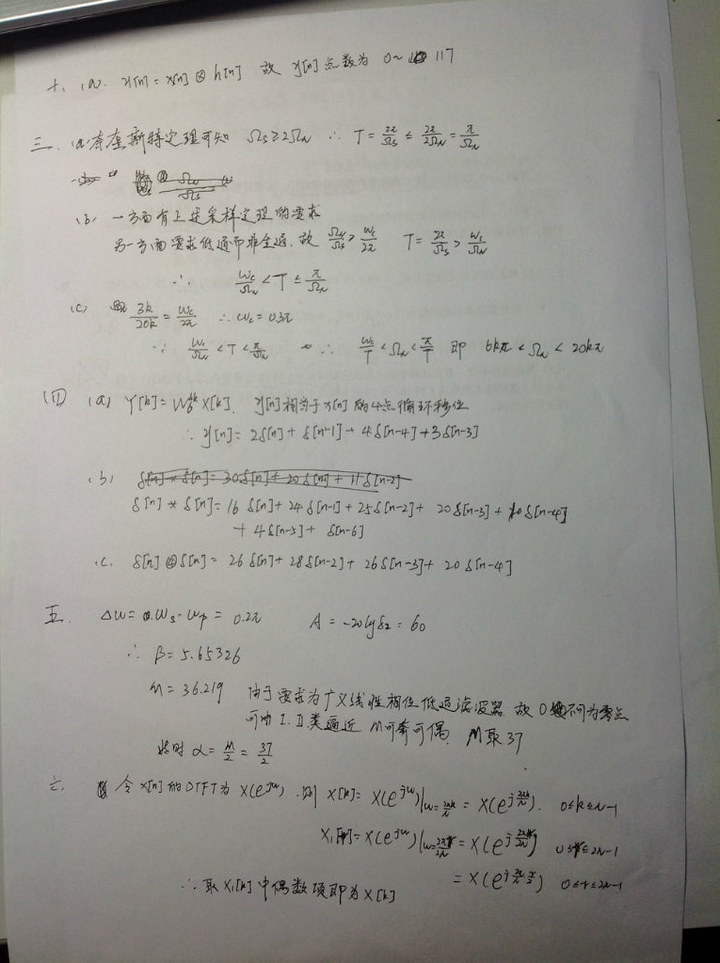 十. (a). y[n] = x[n] ⊛ h[n] 故 y[n] 点数为 0~ 117
三. (a) 奈奎斯特定理可知 Ωs ≥ 2ΩN ∴ T = 2π/Ωs ≤ 2π/2ΩN = π/ΩN
(b). 一方面有上述采样定理的要求
另一方面要求低通而非全通. 故 ΩN/Ωs > ωc/2π T = 2π/Ωs > ωc/ΩN
∴ ωc/ΩN < T ≤ π/ΩN
(c) 3k/20k = ωc/2π ∴ ωc = 0.3π
∵ ωc/ΩN < T < π/ΩN ∴ ωc/T < ΩN < π/T 即 6kπ < ΩN < 20kπ
四 (a) Y[k] = W X[k]. y[n]相当于x[n]的4点循环移位
∴ y[n] = 2δ[n] + δ[n-1] + 4δ[n-4] + 3δ[n-3]
(b) δ[n] * δ[n] = 30δ[n] + 20δ[n] + 11δ[n-2]
δ[n] * δ[n] = 16δ[n] + 24δ[n-1] + 25δ[n-2] + 20δ[n-3] + 10δ[n-4]
+ 4δ[n-5] + δ[n-6]
(c. δ[n] ⊛ δ[n] = 26δ[n] + 28δ[n-2] + 26δ[n-3] + 20δ[n-4]
五. Δω = ωs - ωp = 0.2π A = -20lgδ2 = 60
∴ β = 5.65326
M = 36.219 由于要求为广义线性相位低通滤波器 故 0 不可为零点
可由 I. II 类逼近 M可奇可偶. M取37
此时 α = M/2 = 37/2
六. 令x[n]的DTFT为X(e^jω). 则 X[k] = X(e^jω)|ω=2πk/N = X(e^j2πk/N). 0≤k≤N-1
X₁[r] = X(e^jω)|ω=2πr/2N = X(e^j2πr/2N) 0≤r≤2N-1
= X(e^j2π/N·r/2) 0≤r≤2N-1
∴ 取X₁[k]中偶数项即为X[k]